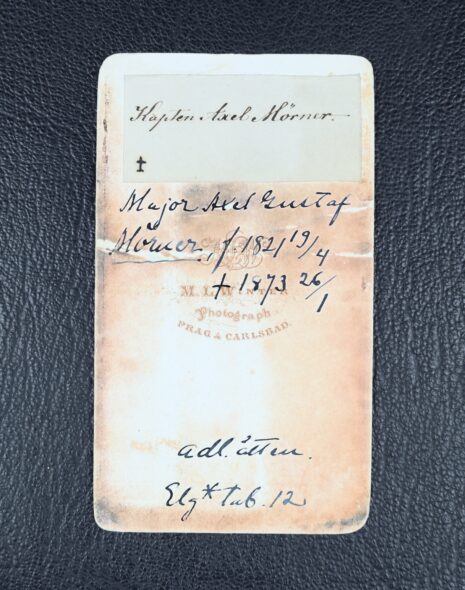 Kapten Axel Mörner.
†
Major Axel Gustaf
Mörner. f 1821 19/4
† 1873 26/1
M. L. WINTER
Photograph
PRAG & CARLSBAD.
adl. ätten.
Elg* tab. 12